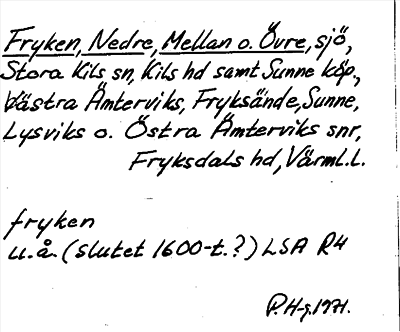 Fryken, Nedre, Mellan o. Övre, sjö,
Stora Kils sn, Kils hd samt Sunne köp.,
Västra Ämterviks, Fryksände, Sunne,
Lysviks o. Östra Ämterviks snr,
Fryksdals hd, Värml. l.
fryken
u.å. (slutet 1600-t.?) LSA R4
P.H-g. 1971.